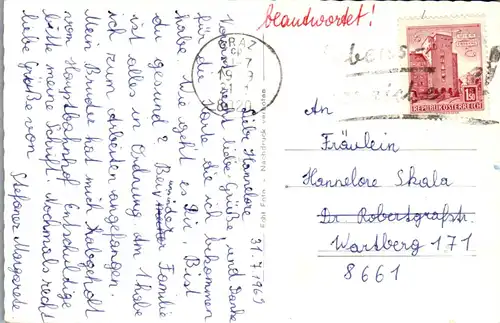 beantwortet!
GRAZ
REPUBLIK ÖSTERREICH
1.50
31.7.1969
Liebe Hannelore
Vorerst liebe Grüße und Danke
für die Karte die ich bekommen
habe. Wie geht es Dir, Bist
du gesund? Bei uns in der Familie
ist alles in Ordnung. Am 1 habe
ich zum Arbeiten angefangen.
Mein Bruder hat mich Habgeholt
vom Hauptbahnhof Entschuldige
bitte meine Schrift Nochmals recht
liebe Grüße von
Stefaner Margarete
Nachdruck verboten
An
Fräulein
Hannelore Skala
Dr. Robertgrafstr.
Wartberg 171
8661